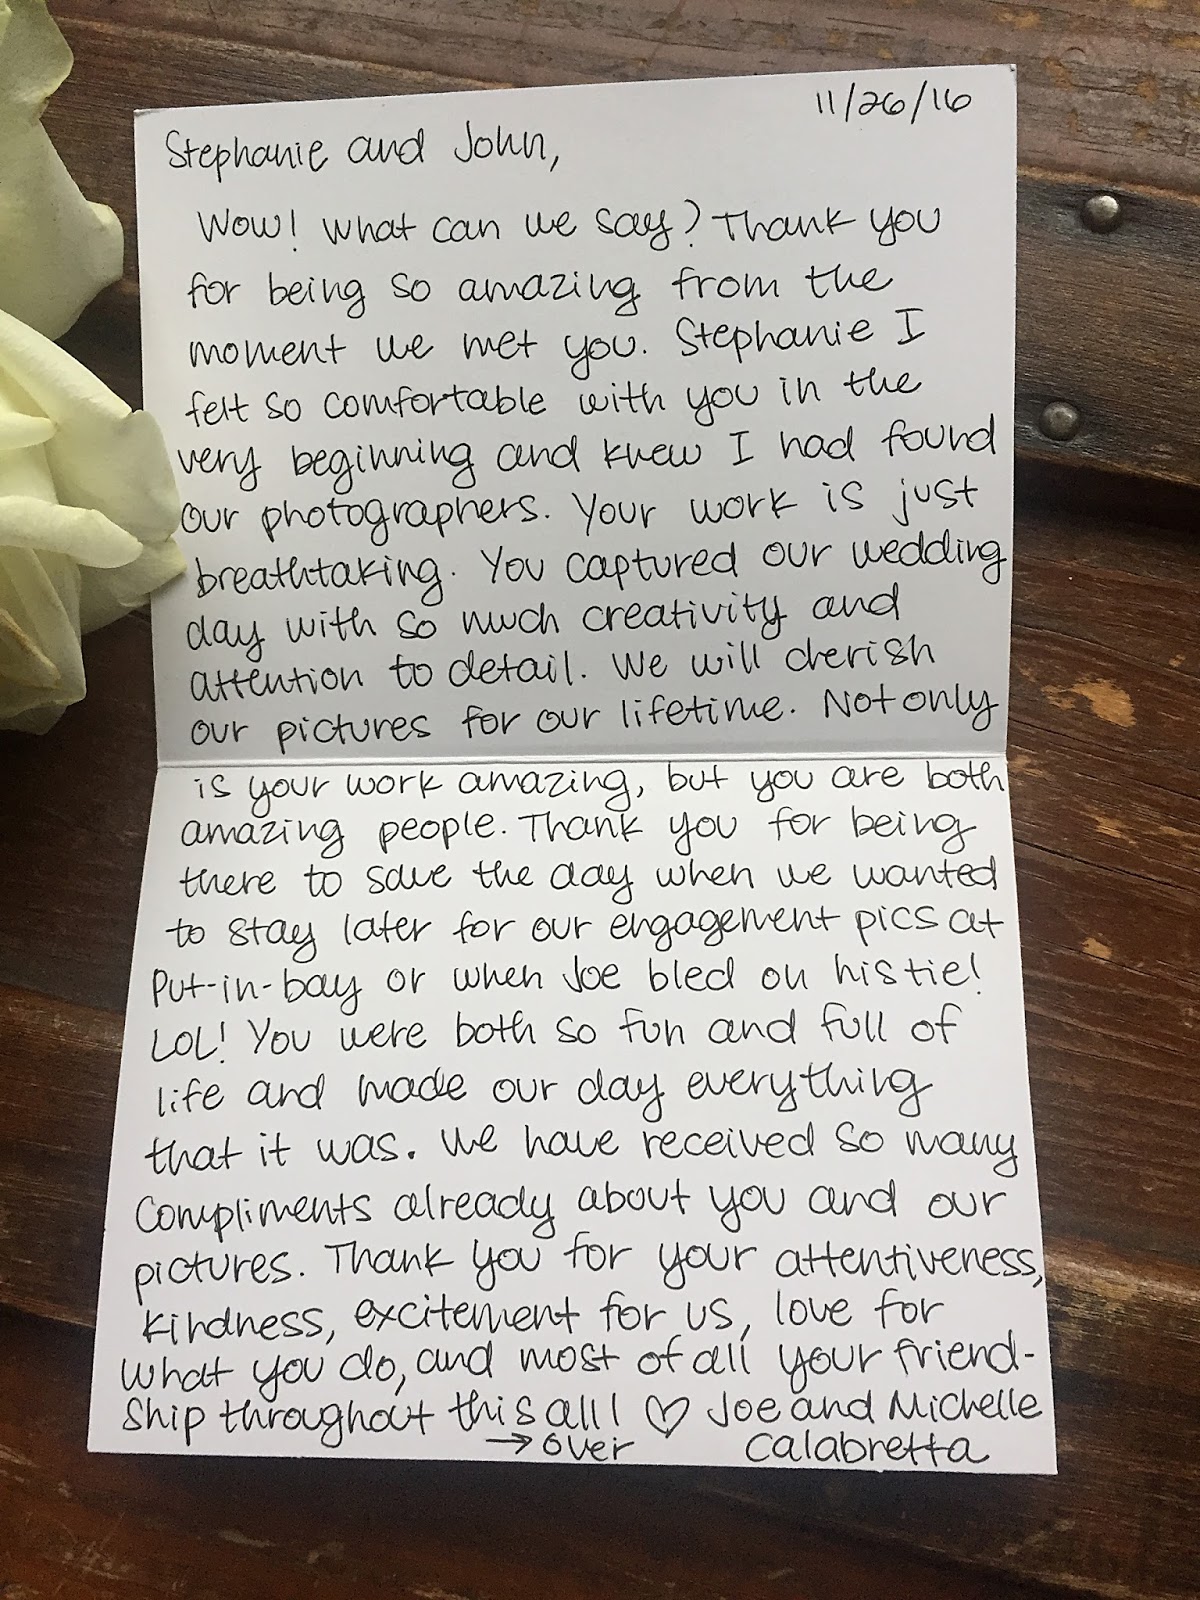 11/26/16
Stephanie and John,
Wow! What can we say? Thank you
for being so amazing from the
moment we met you. Stephanie I
felt so comfortable with you in the
very beginning and knew I had found
our photographers. Your work is just
breathtaking. You captured our wedding
day with so much creativity and
attention to detail. We will cherish
our pictures for our lifetime. Not only
is your work amazing, but you are both
amazing people. Thank you for being
there to save the day when we wanted
to stay later for our engagement pics at
Put-in-bay or when Joe bled on his tie!
LOL! You were both so fun and full of
life and made our day everything
that it was. We have received so many
compliments already about you and our
pictures. Thank you for your attentiveness,
kindness, excitement for us, love for
what you do, and most of all your friend-
ship throughout this all! ♡ Joe and Michelle
→ over Calabretta